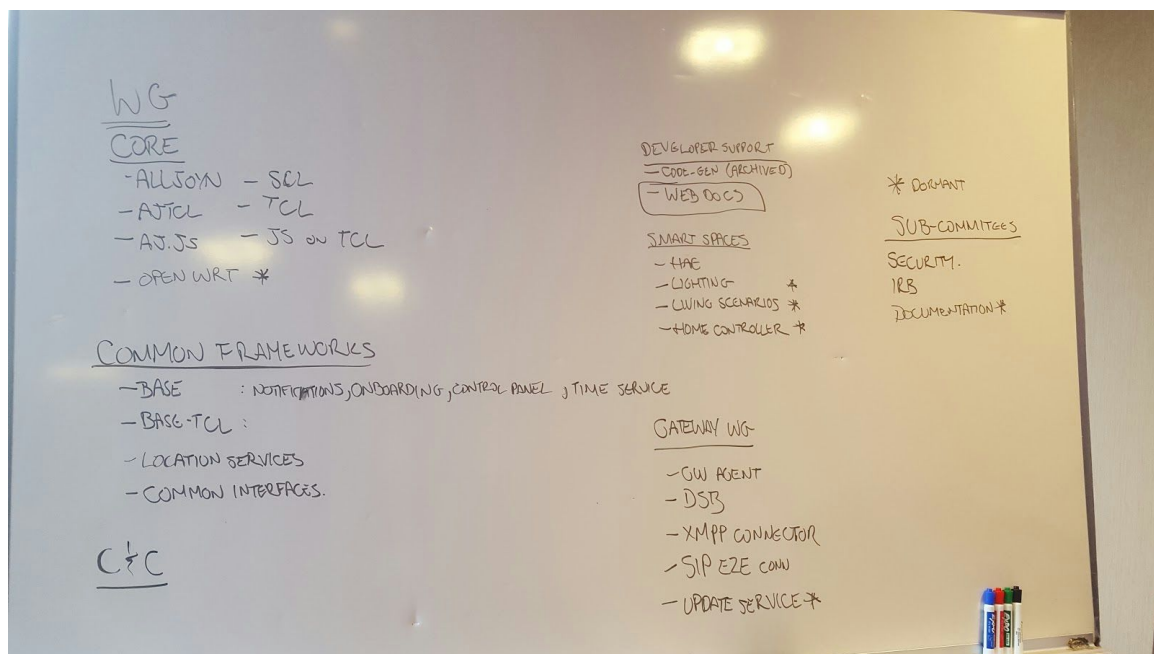 WG
CORE
- ALLJOYN - SCL
- AJTCL - TCL
- AJ.JS - JS ON TCL
- OPEN WRT *
COMMON FRAMEWORKS
- BASE : NOTIFICATIONS, ONBOARDING, CONTROL PANEL, TIME SERVICE
- BASE-TCL :
- LOCATION SERVICES
- COMMON INTERFACES.
C&C
DEVELOPER SUPPORT
- CODE-GEN (ARCHIVED)
- WEB DOCS
SMART SPACES
- HAE
- LIGHTING *
- LIVING SCENARIOS *
- HOME CONTROLLER *
GATEWAY WG
- GW AGENT
- DSB
- XMPP CONNECTOR
- SIP E2E CONN
- UPDATE SERVICE *
* DORMANT
SUB-COMMITEES
SECURITY.
IRB
DOCUMENTATION *